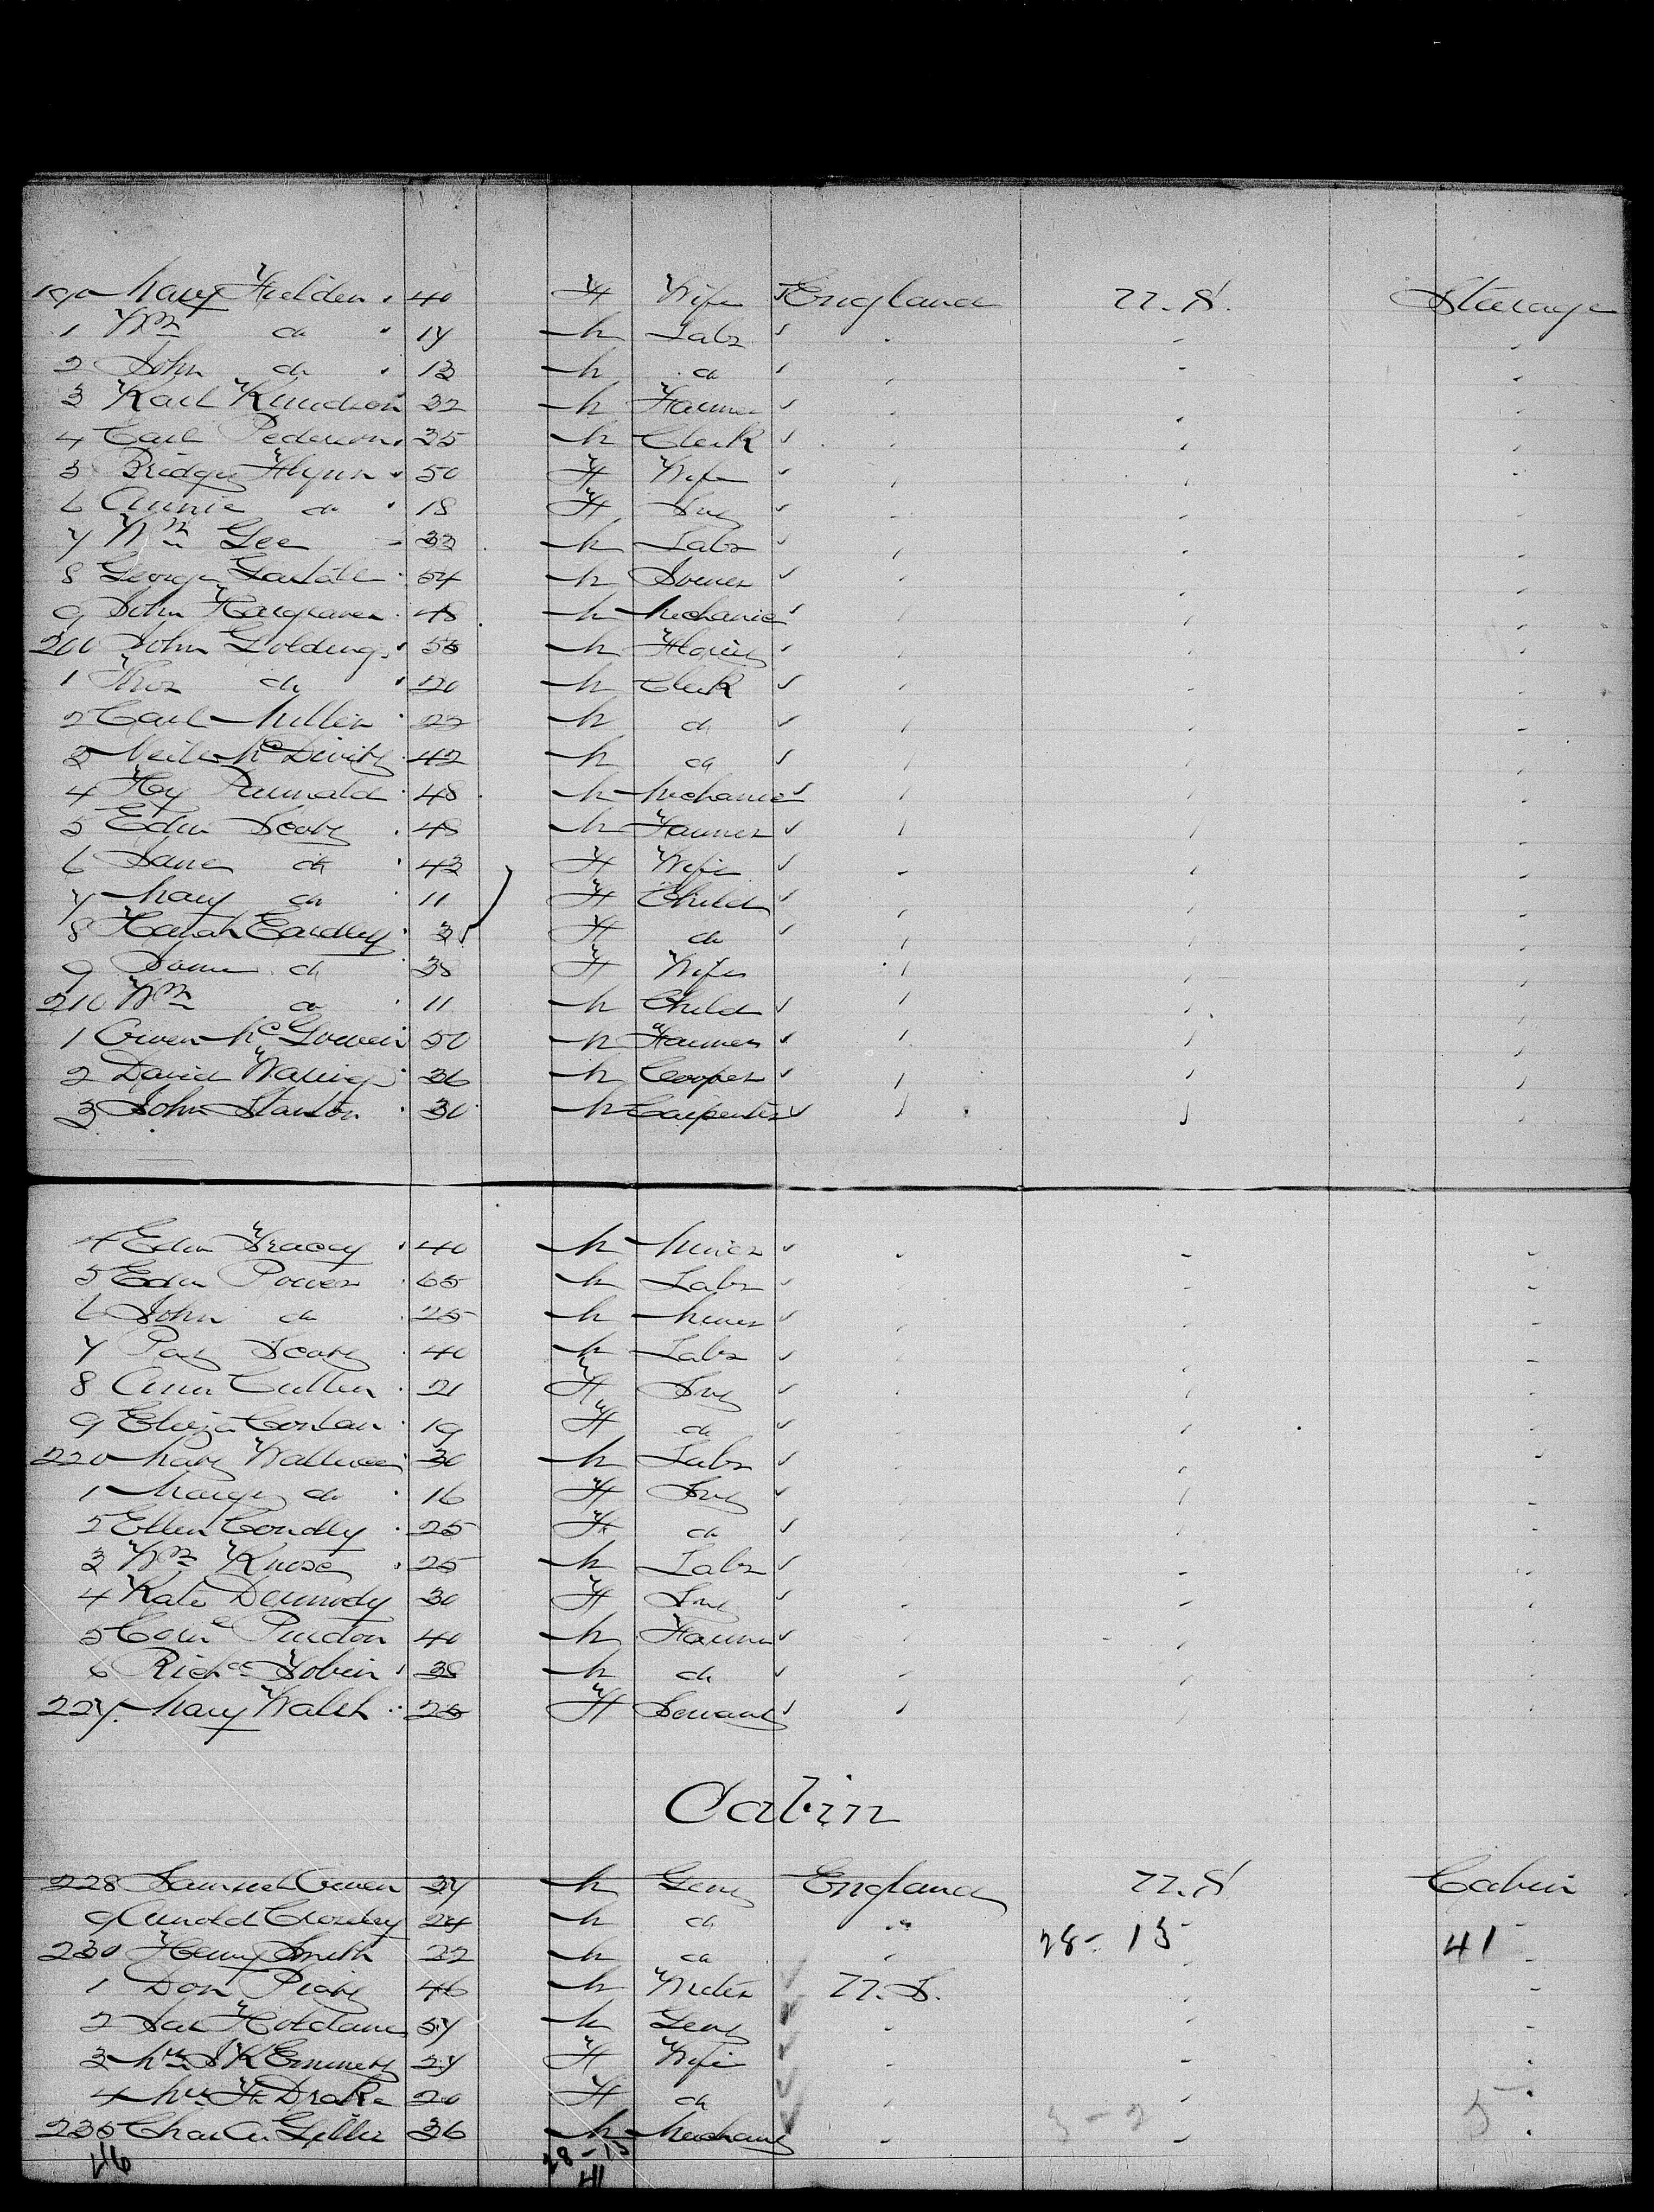 190 Mary Fielden 40 F Wife England U.S. Steerage
1 Wm do 17 M Labr
2 John do 13 M do
3 Karl Knudson 32 M Farmer
4 Carl Pederson 35 M Clerk
5 Bridget Flynn 50 F Wife
6 Annie do 18 F Svt
7 Wm Gee 33 M Labr
8 George 54 M
9 John Hargraves 48 M Mechanic
200 John Golding 55 M
1 Thos do 20 M Clerk
2 Carl Miller 22 M do
3 Neil McDevitt 42 M do
4 Hy 48 M Mechanic
5 Edwd 48 M Farmer
6 Jane do 43 F Wife
7 Mary do 11 F Child
8 Hanah Eardley F do
9 do 38 F Wife
210 Wm do 11 M Child
1 Owen McGowen 50 M Farmer
2 David Waring 36 M Cooper
3 John Stanton 30 M Carpenter
4 Edwd Tracey 40 M Miner
5 Edwd Power 65 M Labr
6 John do 25 M Miner
7 Pat 40 M Labr
8 Ann Cullen 21 F Svt
9 Eliza Conlan 19 F do
220 30 M Labr
1 Margt do 16 F Svt
2 Ellen Condly 25 F do
3 Wm 25 M Labr
4 Kate Dermody 30 F Svt
5 Purdon 40 M Farmer
6 Richd Tobin 38 M do
227 Mary Walsh 25 F Servant
Cabin
228 Samuel Owen 37 M Gent England U.S Cabin
9 Arnold Crossley 24 M do "
28-13 41
230 Henry Smith 22 M do
1 Don Piatt 46 M Writer U.S.
2 Haldane 57 M Gent
3 Mrs J K Emmett 27 F Wife
4 Mrs F Drake 20 F do
3-2 5
235 Chas A. 36 M Merchant
46 28-13
41